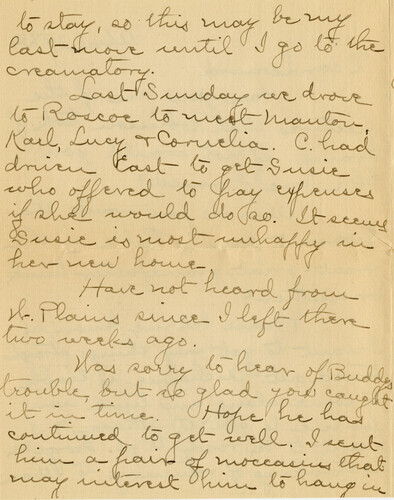 to stay, so this may be my
last move until I go to the
creamatory.
Last Sunday we drove
to Roscoe to meet Manton,
Karl, Lucy & Cornelia. C. had
driven East to get Susie
who offered to pay expenses
if she would do so. It seems
Susie is most unhappy in
her new home.
Have not heard from
W. Plains since I left there
two weeks ago.
Was sorry to hear of Buddys
trouble, but so glad you caught
it in time. Hope he has
continued to get well. I sent
him a pair of moccasins that
may interest him to hang in